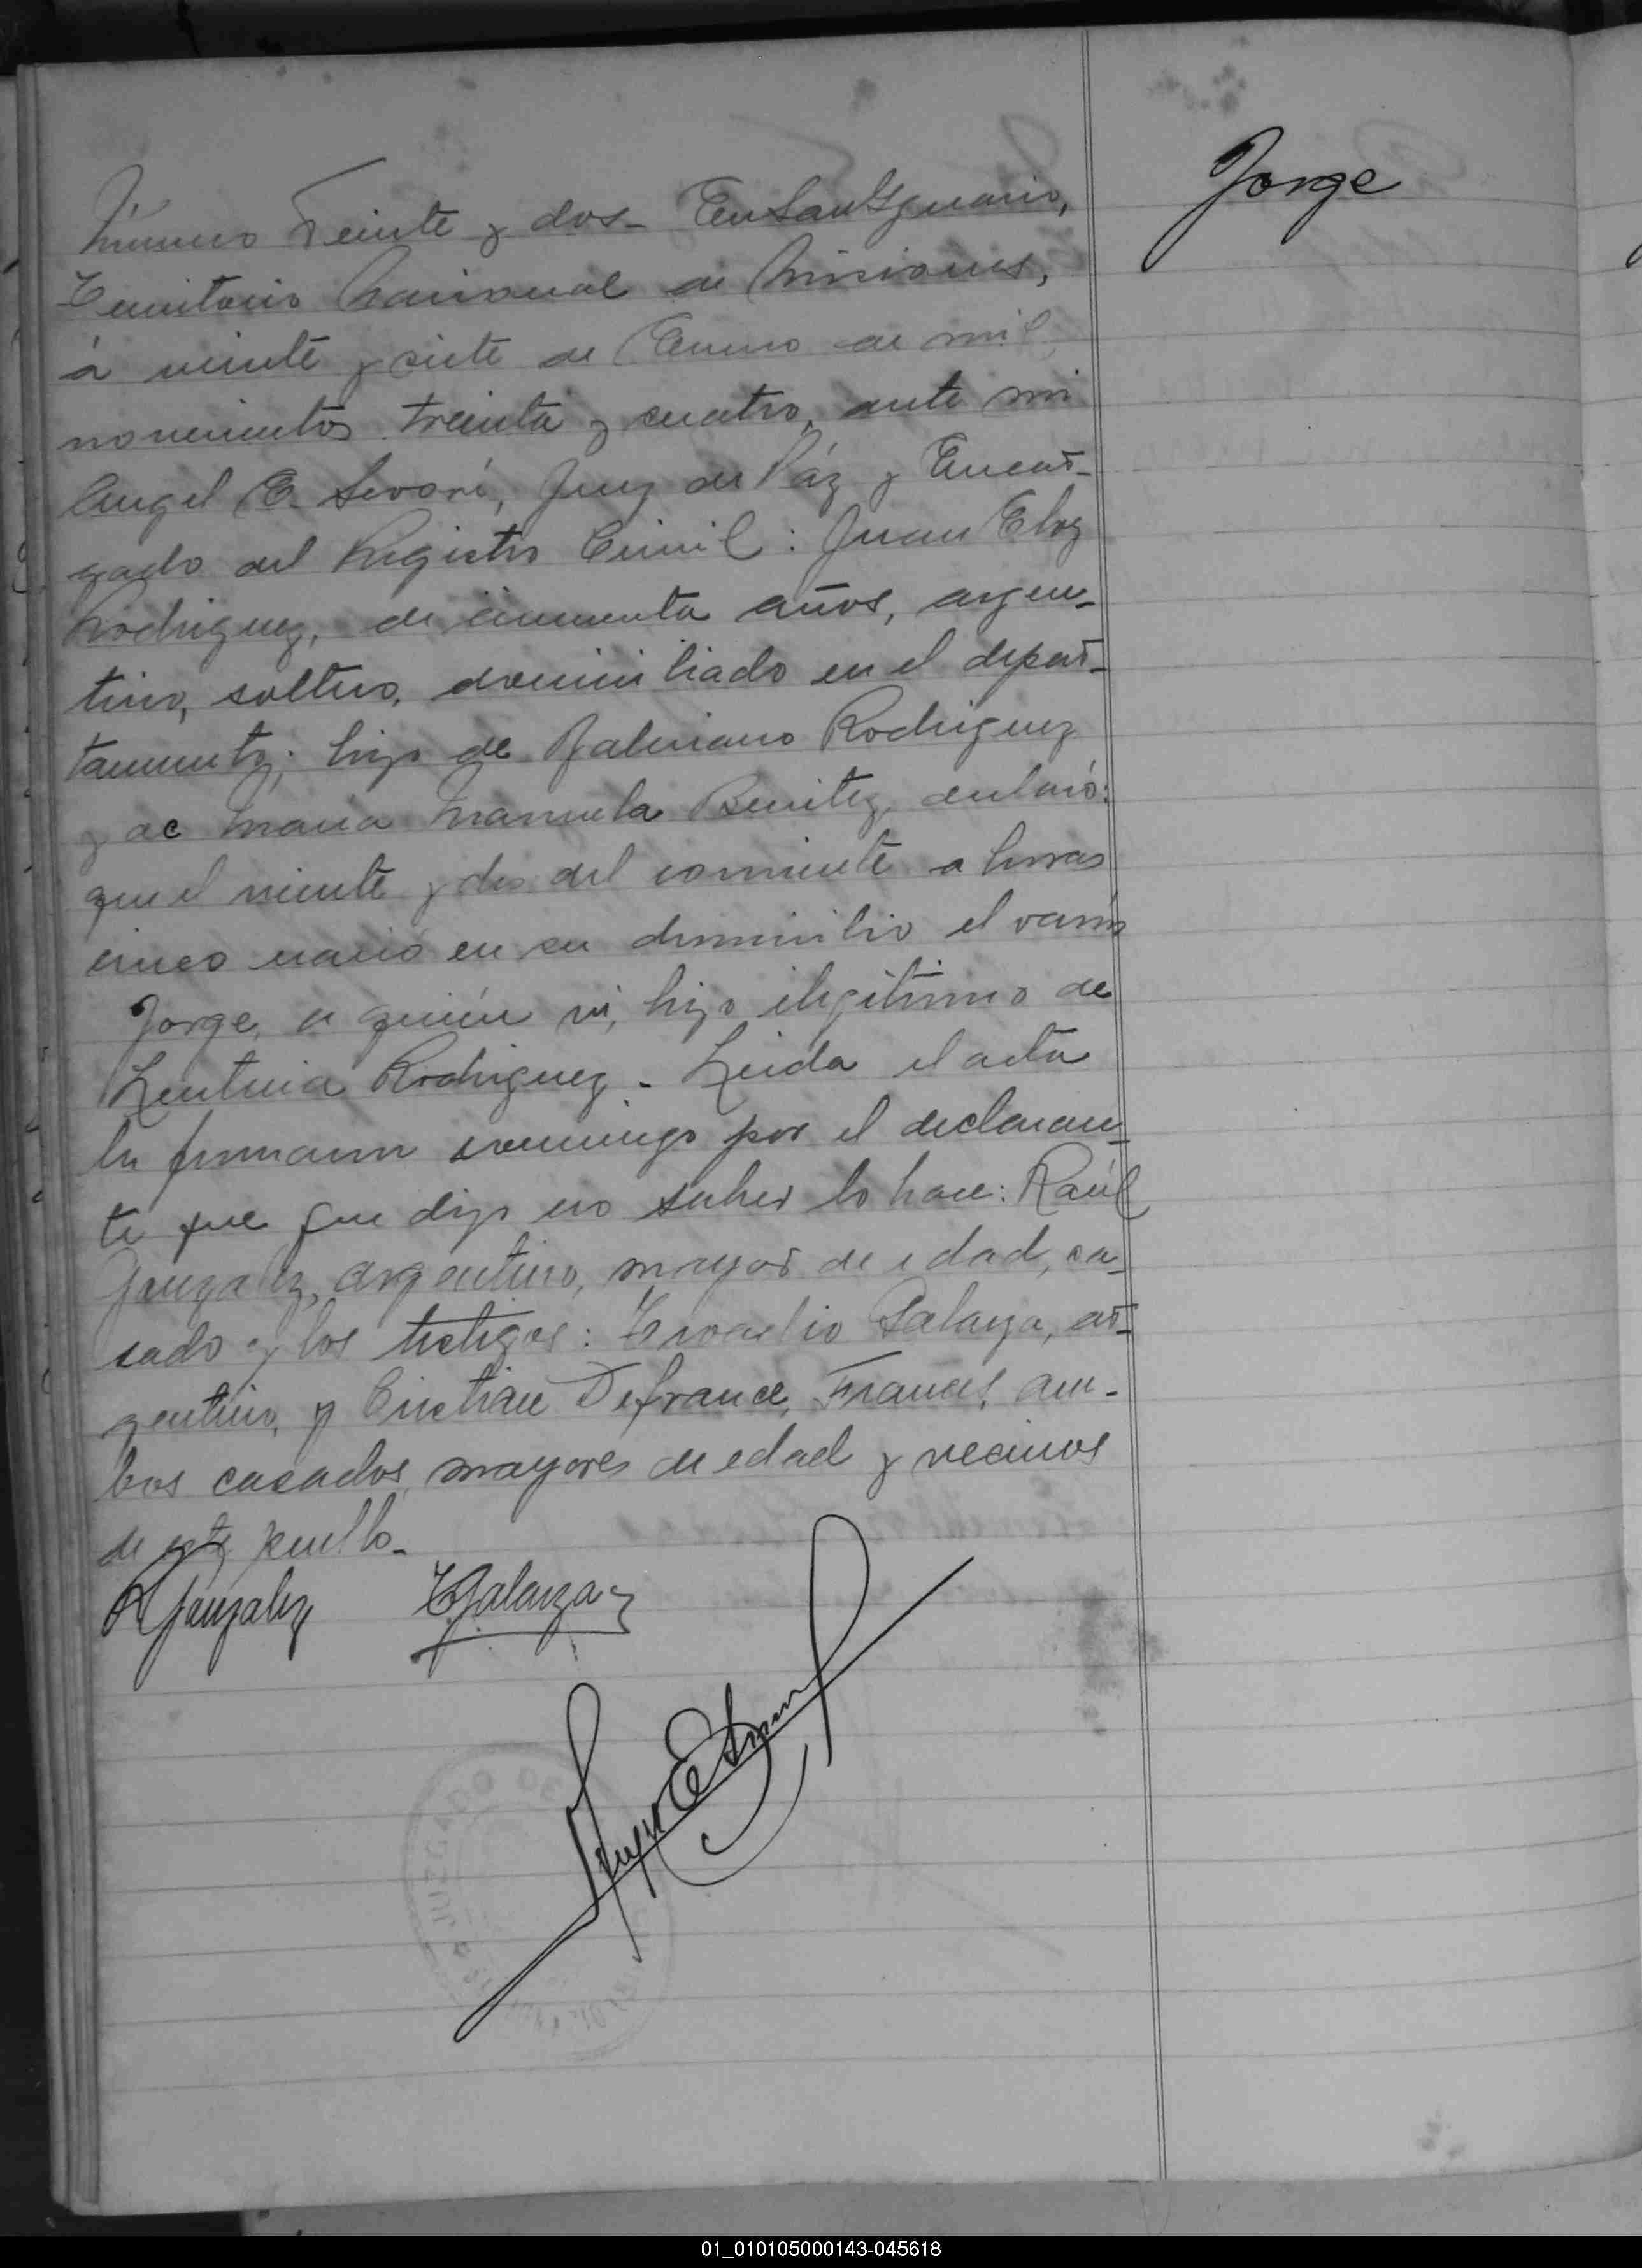 Jorge
Número Veinte y dos - En San Ygnacio,
Territorio Nacional de Misiones,
á veinte y siete de Enero de mil
novecientos treinta y cuatro, ante mi
Angel E. Severi, Juez de Páz y Encar-
gado del Registro Civil: Juan Eloy
Rodriguez, de cincuenta años, argen-
tino, soltero, domiciliado en el depar-
tamento; hijo de Rodriguez
y de Maria Manuela Benitez, declaró:
que el veinte y dos del corriente a horas
cinco nació en su domicilio el varón
Jorge, a quién vi, hijo ilegitimo de
Rodriguez - Leida el acta
la firmaron conmigo por el declaran-
te que que dijo no saber lo hace: Raúl
Gonzalez, argentino, mayor de edad, ca-
sado y los testigos: Galarza, ar-
gentino, y Cristian Defrance, Francés, am-
bos casados, mayores de edad y vecinos
de este pueblo -
R Gonzalez
Galarza
Angel E
01_010105000143-045618